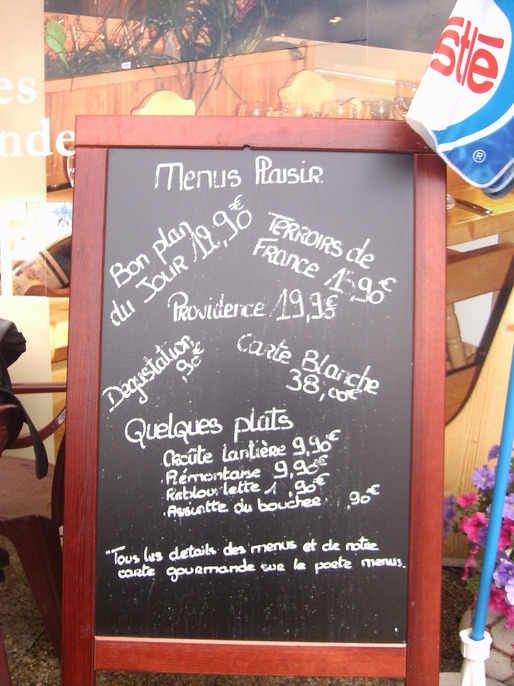 es
nde
stlé
®
Menus Plaisir
Bon plan
du JOUR 12,90€
TERROIRS de
FRANCE 15,90€
Providence 19,95€
Degustation
,90€
Carte Blanche
38,00€
Quelques plats
Croûte Lantière 9,90€
Piémontaise 9,90€
,90€
Assiette du boucher ,90€
"Tous les details des menus et de notre
carte gourmande sur le porte menus.